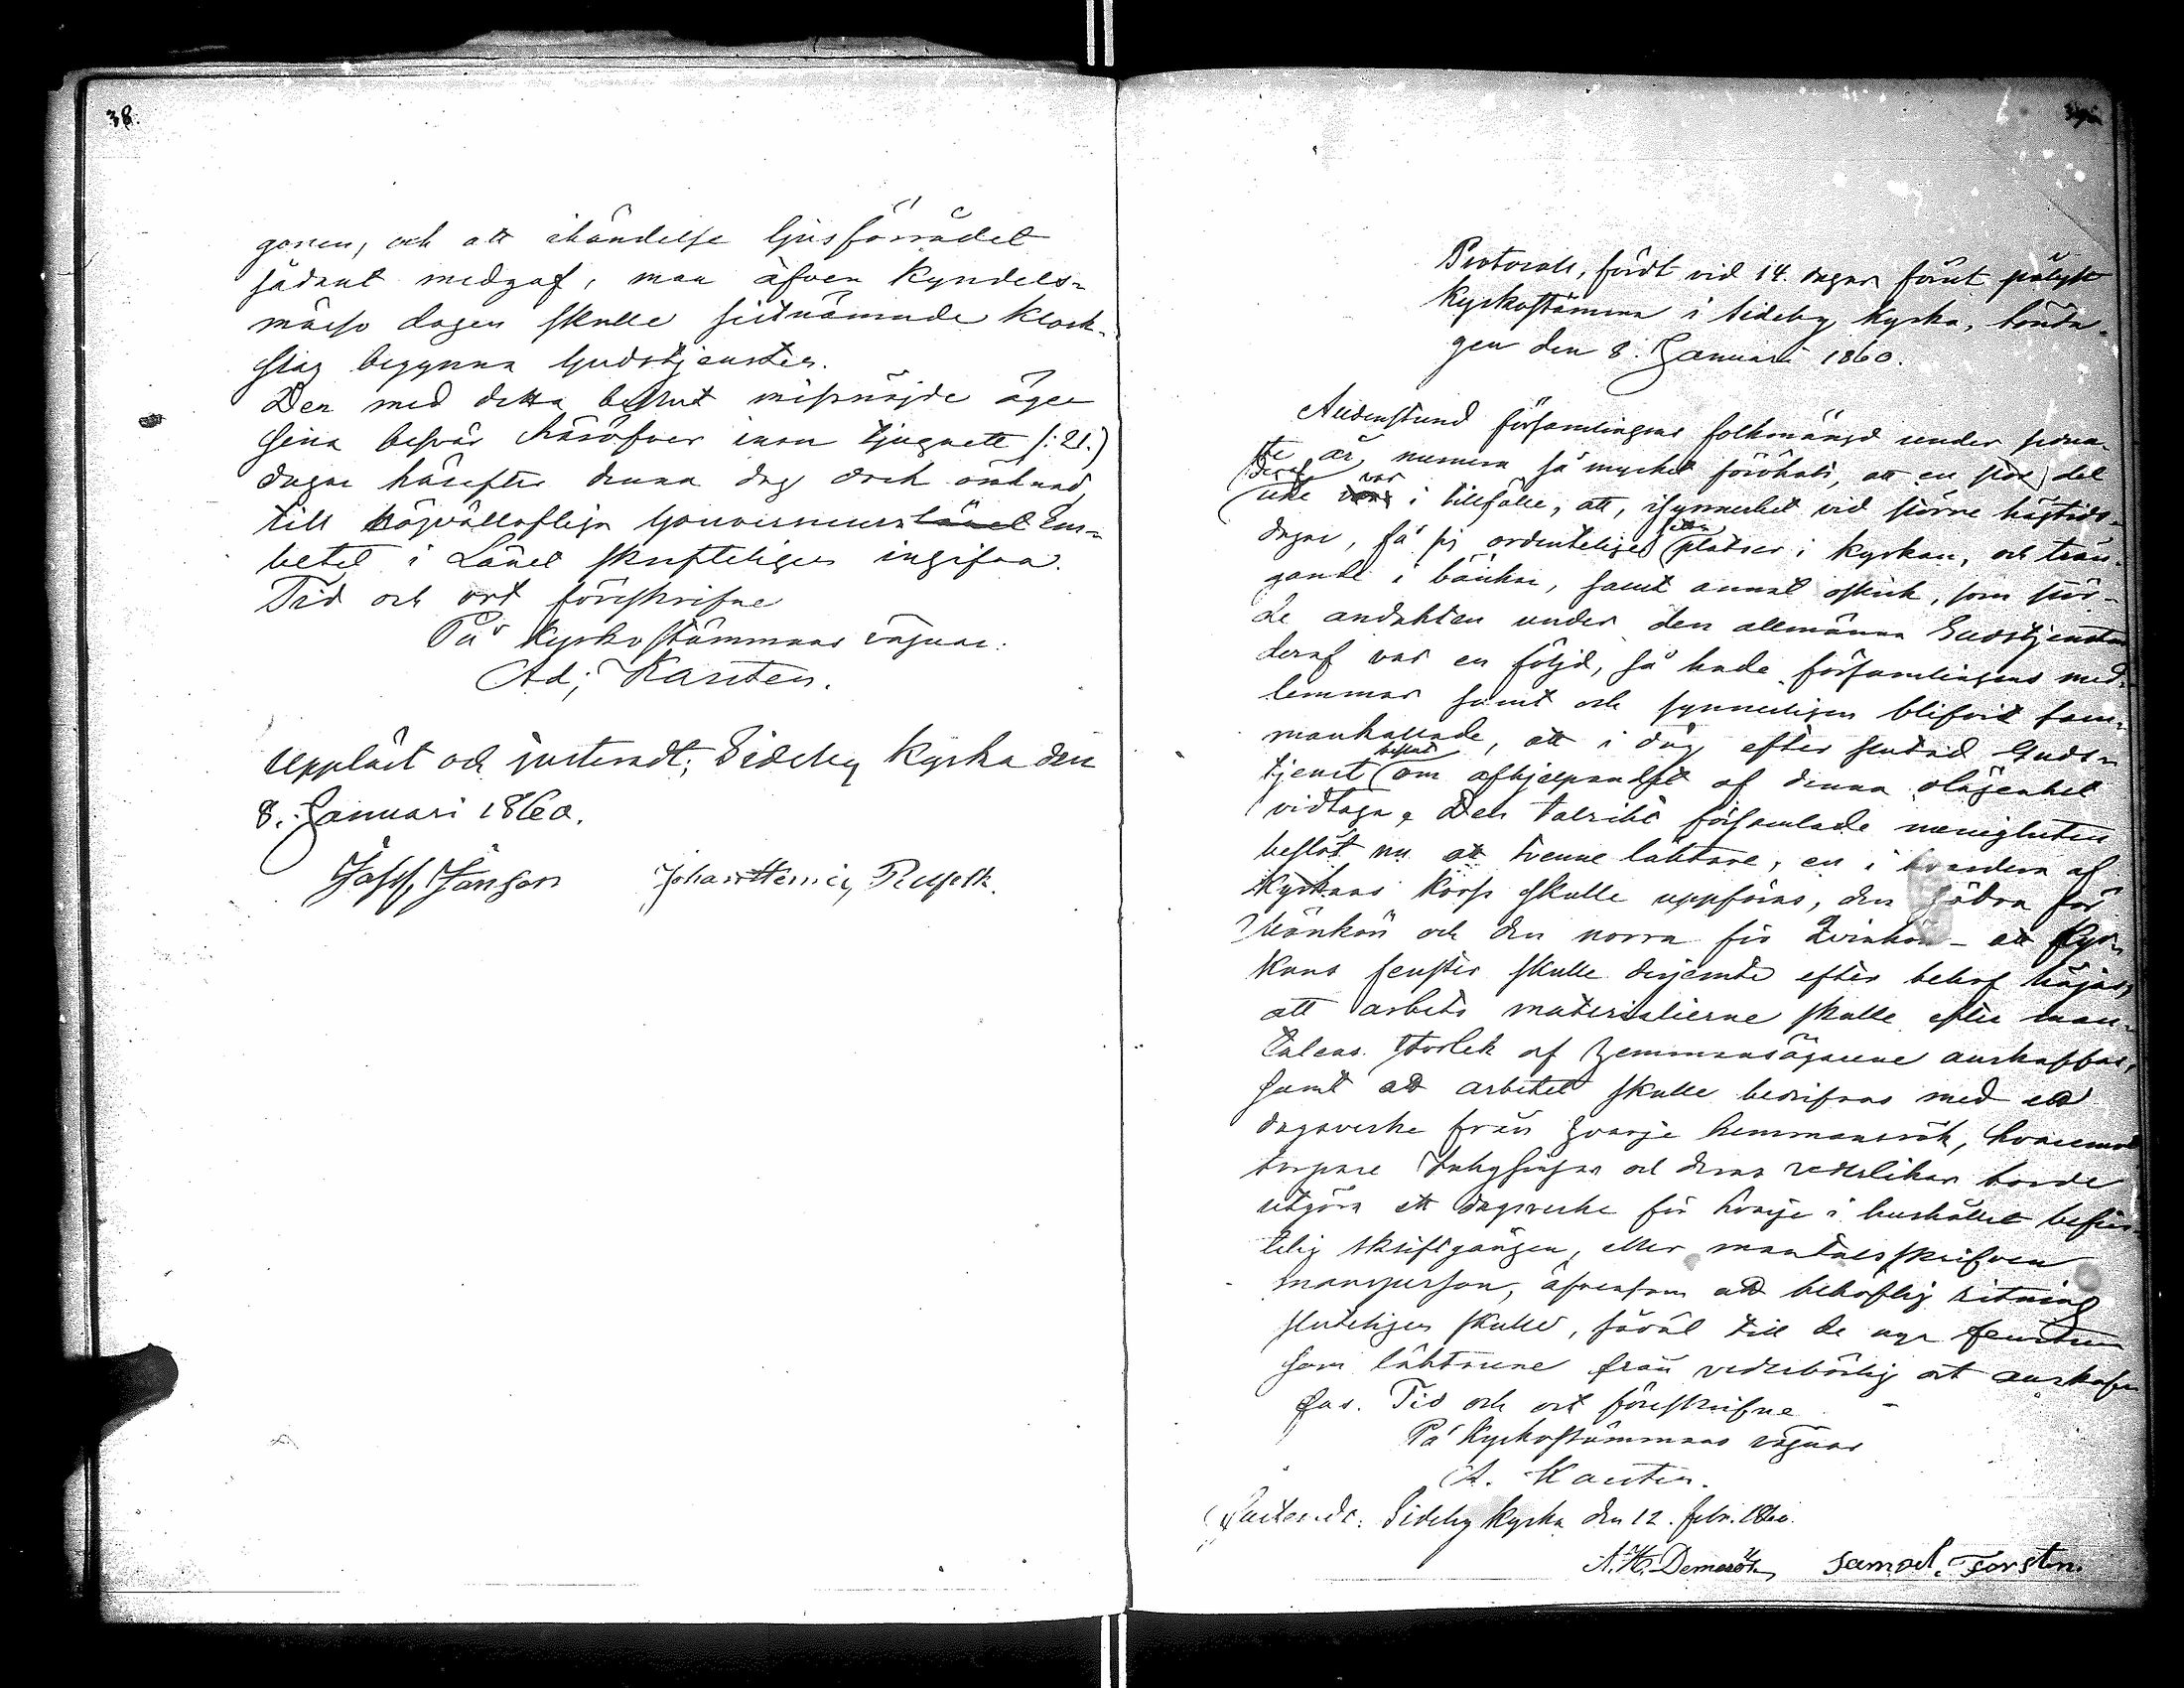 38.
gonen, och att ihändelse ljusförrådet
sådant medgaf, man äfven Kyndels-
mässo dagen skulle sistnämnde klock-
slag begynna Gudstjensten.
Den med detta beslut missnöjde äger
sina besvär häröfver inom tjuguett (:21.)
dagar härefter denna dag oräknad
till Högvällofliga Gouverneurs länet Em-
betet i Länet skrifteligen ingifva.
Tid och ort föreskrifne
På Kyrkostämmans vägnar:
Ad; Karsten.
Uppläst och justeradt; Sideby Kyrka den
8. Januari 1860.
Josef Jönson Johan Henric
Protocoll, fördt vid 14. dagar förut pålyst
Kyrkostämma i Sideby Kyrka, Sönda-
gen den 8. Januari 1860.
Alldenstund församlingens folkmängd under sedna-
ste år numera så mycket förökats, att en stor del
deraf var
icke i tillfälle, att, isynnerhet vid större högtids-
dagar, få sig ordenteliga platser i kyrkan, och trän-
gande i bänkar, samt annat oskick, som stör-
de andakten under den allmänna Gudstjensten
deraf var en följd, så hade församlingens med-
lemmar samt och synnerligen blifvit sam-
mankallade, att i dag efter slutad Guds-
beslut
tjenst om afhjelpandet af denna olägenhet
vidtaga. Den talrikt församlade menigheten
beslöt nu att tvenne läktare, en i hvardera af
Kyrkans Korss skulle uppföras, den södra för
Mankön och den norra för Qvinkön - att Kyr-
kans fenster skulle derjemte efter behof höjas,
att arbets materialierne skulle efter man-
talens storlek af Hemmansägarene anskaffas,
samt att arbetet skulle bedrifvas med ett
dagsverke från hvarje hemmansrök, hvaremot
torpare Inhysingar och deras vederlikar borde
utgöra ett dagsverke för hvarje i hushållet befin-
telig skriftgången, eller mantalsskrifven
mansperson, äfvensom att behöflig ritning
sluteligen skulle, såväl till de nya fenstren
som läktarene från vederbörlig ort anskaf-
fas. Tid och ort föreskrifne
På Kyrkostämmans vägnar
A. Karsten.
Justeradt: Sideby Kyrka den 12. Febr. 1860.
A. H. Samoel. Forsten.